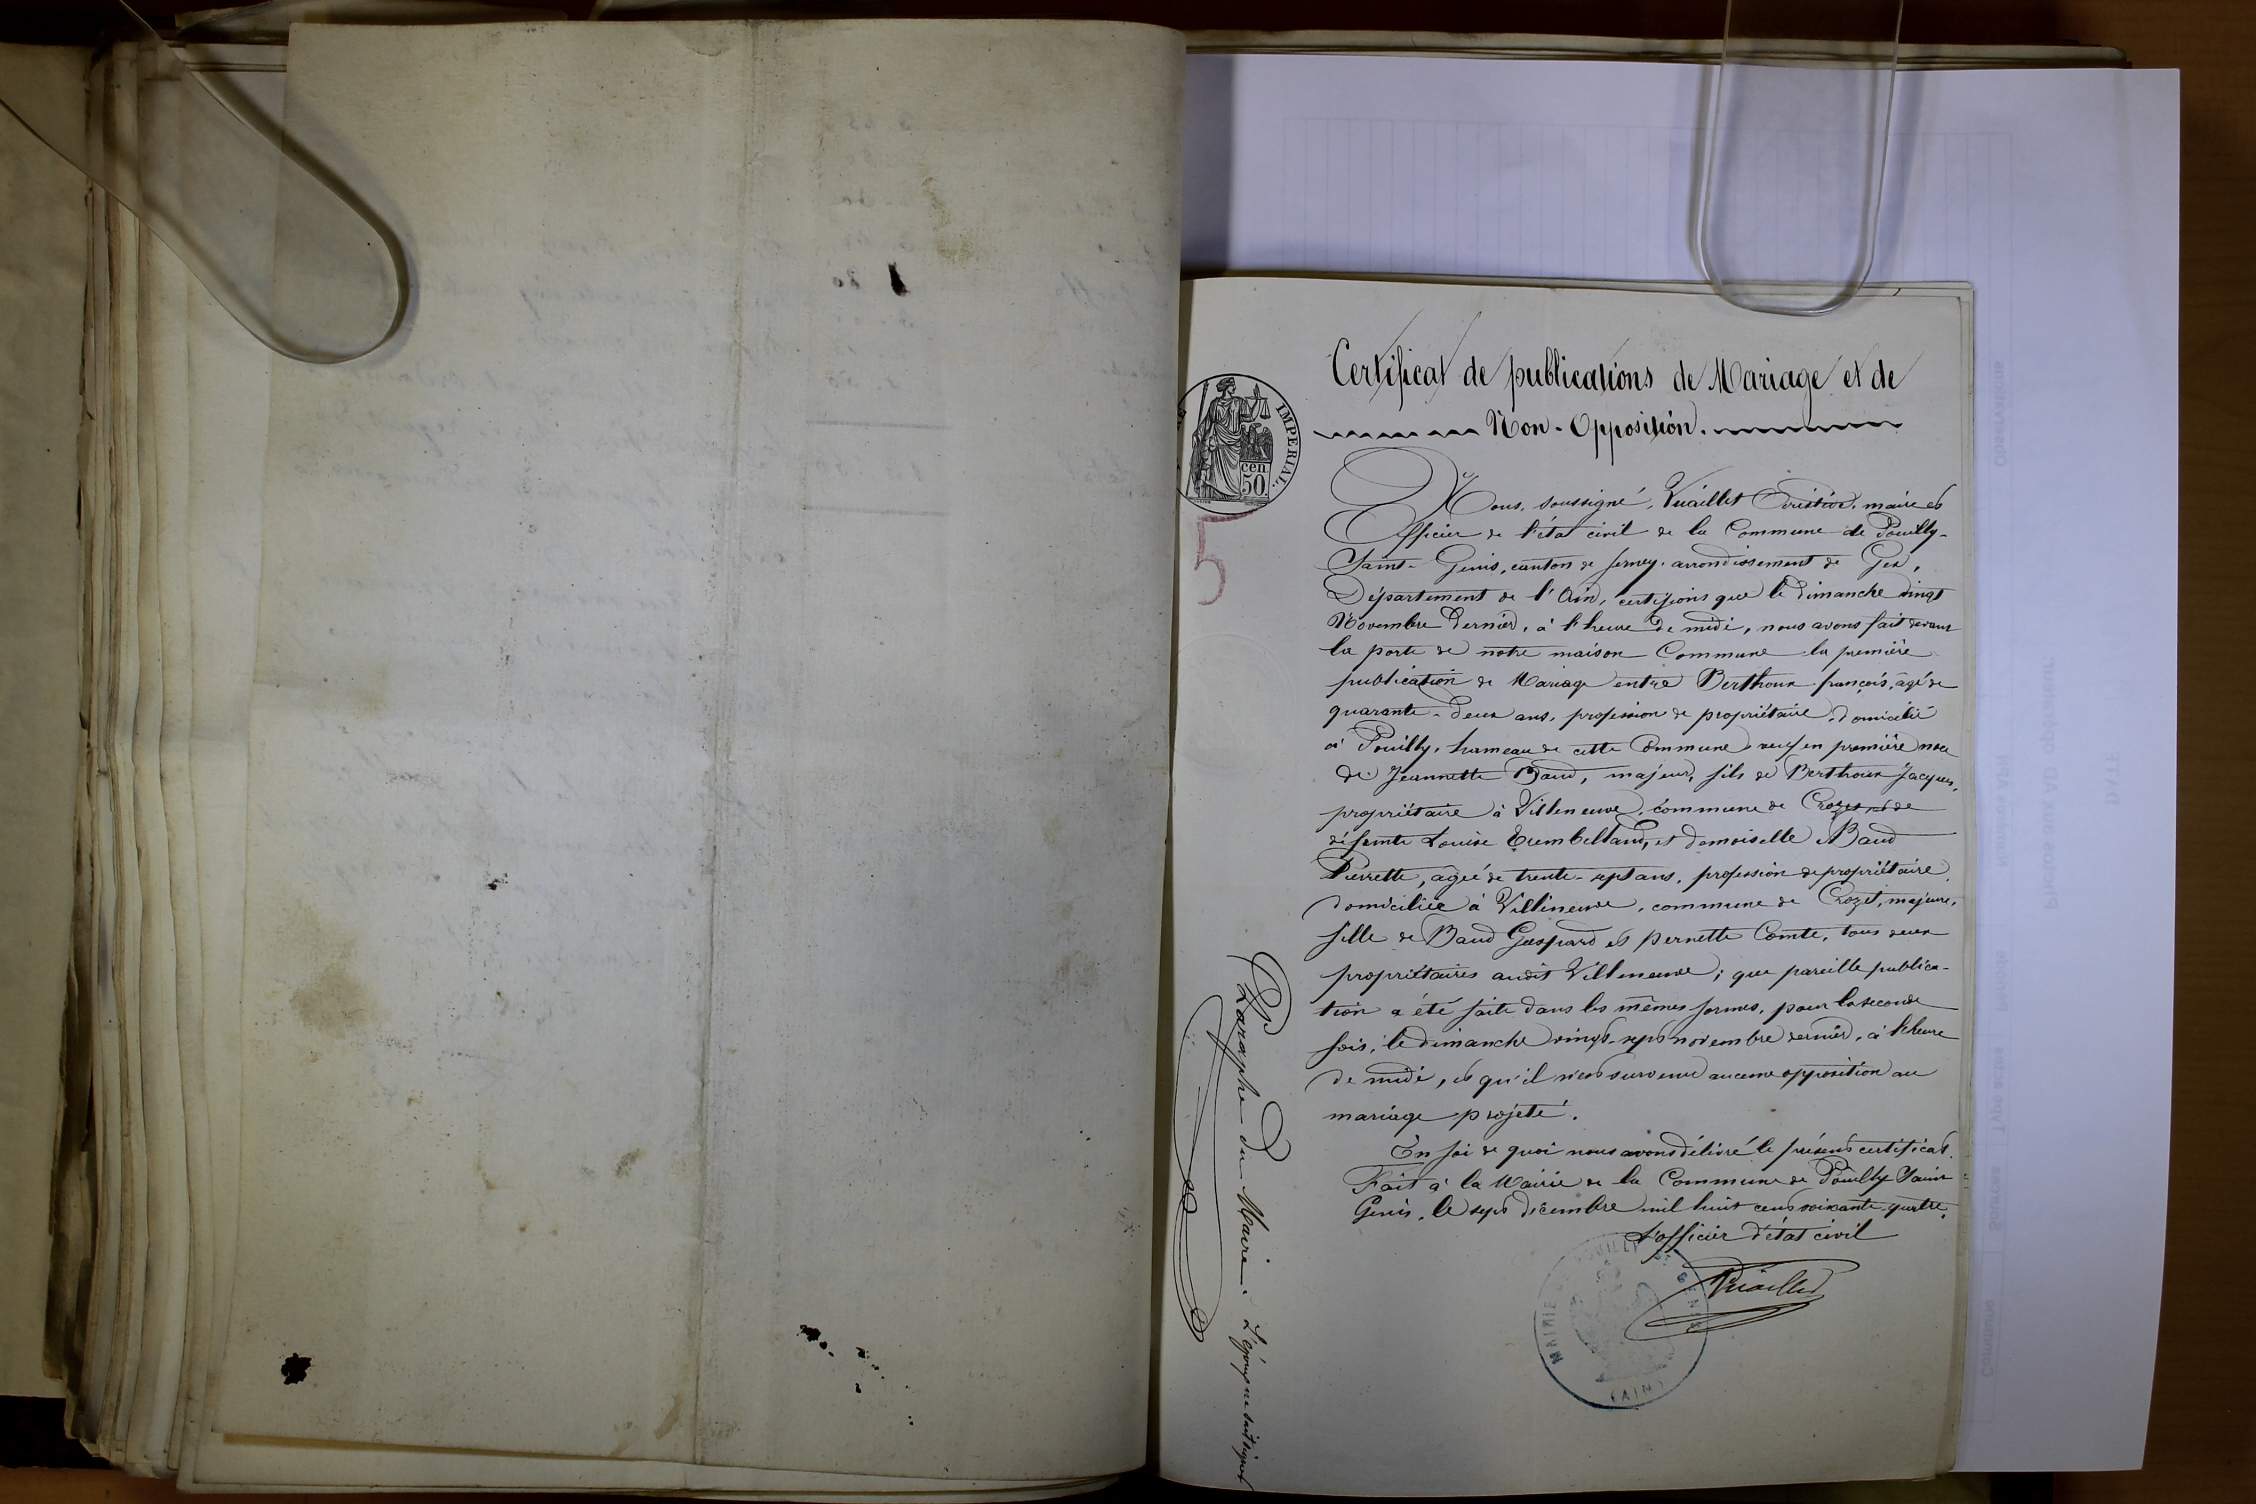 Certificat de publications de Mariage et de
Non-Opposition.
IMPERIAL.
cen
50.
5
Nous, soussigné, Vuaillet Aristide, maire et
Officier de l'état civil de la Commune de Pouilly-
Saint-Genis, canton de ferney, arrondissement de Gex,
Département de l'Ain, certifions que le dimanche vingt
Novembre dernier, à l'heure de midi, nous avons fait devant
la porte de notre maison Commune la première
publication de Mariage entre Berthoux françois, âgé de
quarante-deux ans, profession de propriétaire, domicilié
à Pouilly, hameau de cette Commune, veuf en première noce
de Jeannette Baud, majeur, fils de Berthoux Jacques,
propriétaire à Villeneuve, commune de Crozet et de
défunte Louise, et demoiselle Baud
Pierrette, agée de trente-sept ans, profession de propriétaire,
domiciliée à Villeneuve, commune de Crozet, majeure,
fille de Baud Gaspard et Pernette Comte, tous deux
propriétaires audit Villeneuve; que pareille publica-
tion a été faite dans les mêmes formes, pour la seconde
fois, le dimanche vingt-sept novembre dernier, à l'heure
de midi, et qu'il n'est survenu aucune opposition au
mariage projeté.
En foi de quoi nous avons délivré le présent certificat.
Fait à la Mairie de la Commune de Pouilly Saint
Genis, le sept décembre mil huit cent soixante-quatre.
L'officier d'état civil
Vuaillet
MAIRIE DE POUILLY ST GENIS
(AIN)
Paraphe du Maire.